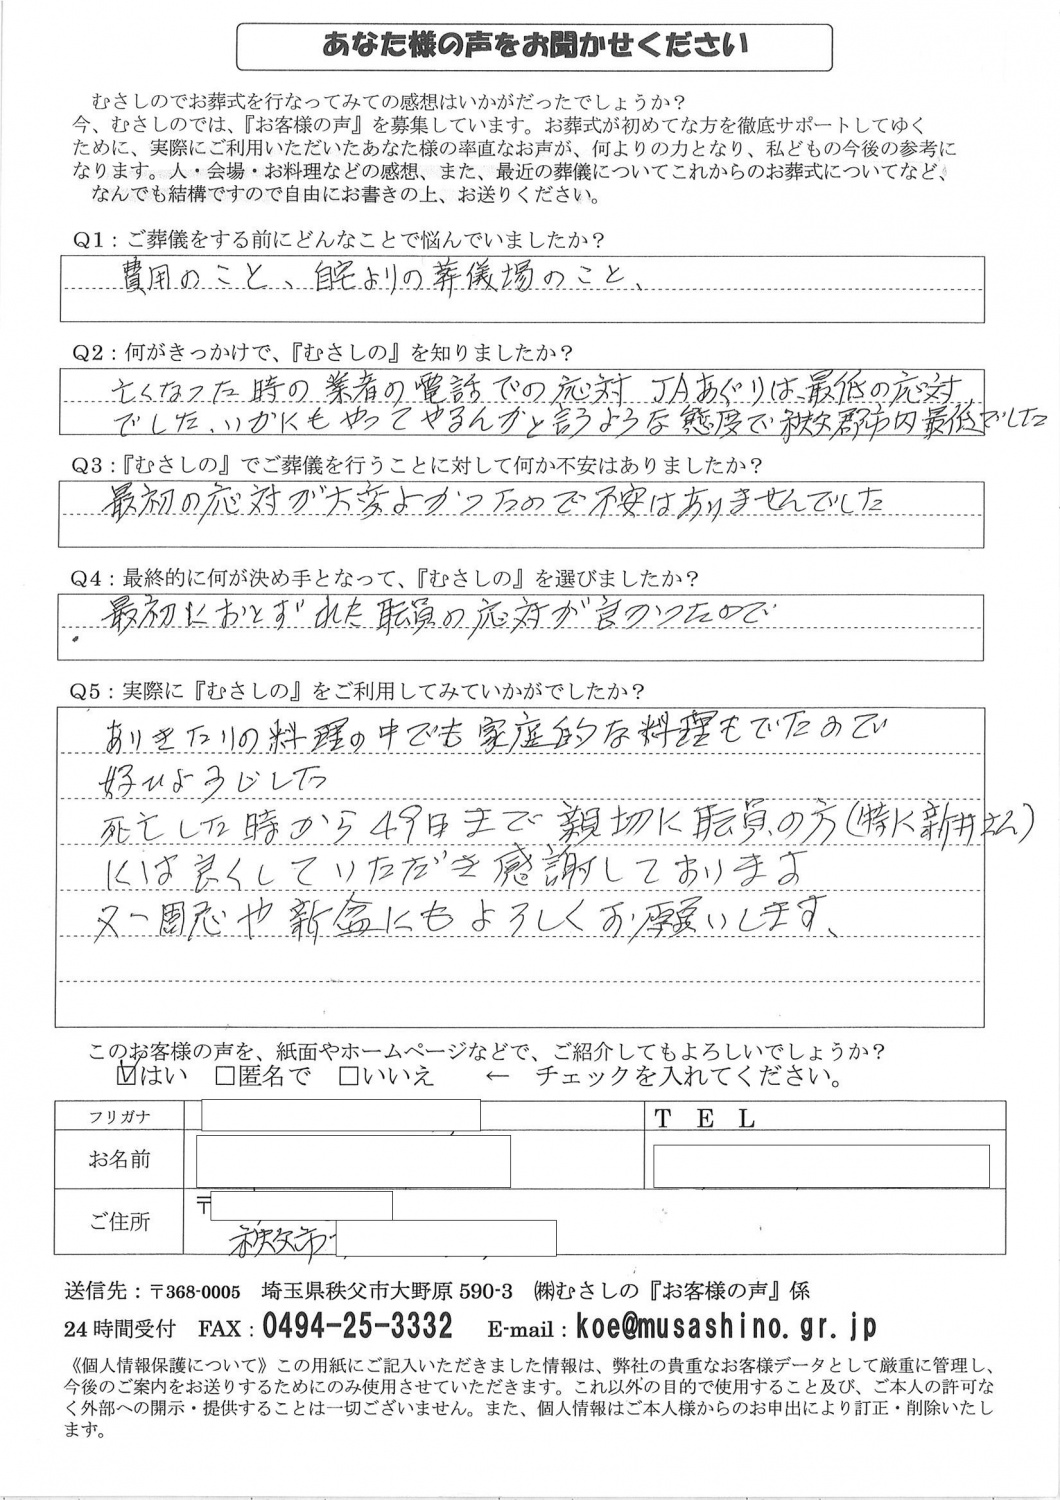 あなた様の声をお聞かせください
むさしのでお葬式を行なってみての感想はいかがだったでしょうか？
今、むさしのでは、『お客様の声』を募集しています。お葬式が初めてな方を徹底サポートしてゆく
ために、実際にご利用いただいたあなた様の率直なお声が、何よりの力となり、私どもの今後の参考に
なります。人・会場・お料理などの感想、また、最近の葬儀についてこれからのお葬式についてなど、
なんでも結構ですので自由にお書きの上、お送りください。
Q1：ご葬儀をする前にどんなことで悩んでいましたか？
費用のこと、自宅よりの葬儀場のこと、
Q2：何がきっかけで、『むさしの』を知りましたか？
亡くなった時の業者の電話での応対 JAあぐりは、最低の応対
でした、いかにもやってやるんかと言うような態度で秩父郡市内最低でした
Q3：『むさしの』でご葬儀を行うことに対して何か不安はありましたか？
最初の応対が大変よかったので不安はありませんでした
Q4：最終的に何が決め手となって、『むさしの』を選びましたか？
最初におとずれた職員の応対が良かったので
Q5：実際に『むさしの』をご利用してみていかがでしたか？
ありきたりの料理の中でも家庭的な料理もでたので
好ひょうじした
死亡した時から49日まで親切に職員の方（特に新井さん）
には良くしていただき感謝しております
又一周忌や新盆にもよろしくお願いします、
このお客様の声を、紙面やホームページなどで、ご紹介してもよろしいでしょうか？
☑はい □匿名で □いいえ ← チェックを入れてください。
フリガナ TEL
お名前
ご住所 〒
秩父市
送信先：〒368-0005 埼玉県秩父市大野原 590-3 ㈱むさしの『お客様の声』係
24 時間受付 FAX：0494-25-3332 E-mail：koe@musashino.gr.jp
《個人情報保護について》この用紙にご記入いただきました情報は、弊社の貴重なお客様データとして厳重に管理し、
今後のご案内をお送りするためにのみ使用させていただきます。これ以外の目的で使用すること及び、ご本人の許可な
く外部への開示・提供することは一切ございません。また、個人情報はご本人様からのお申出により訂正・削除いたし
ます。